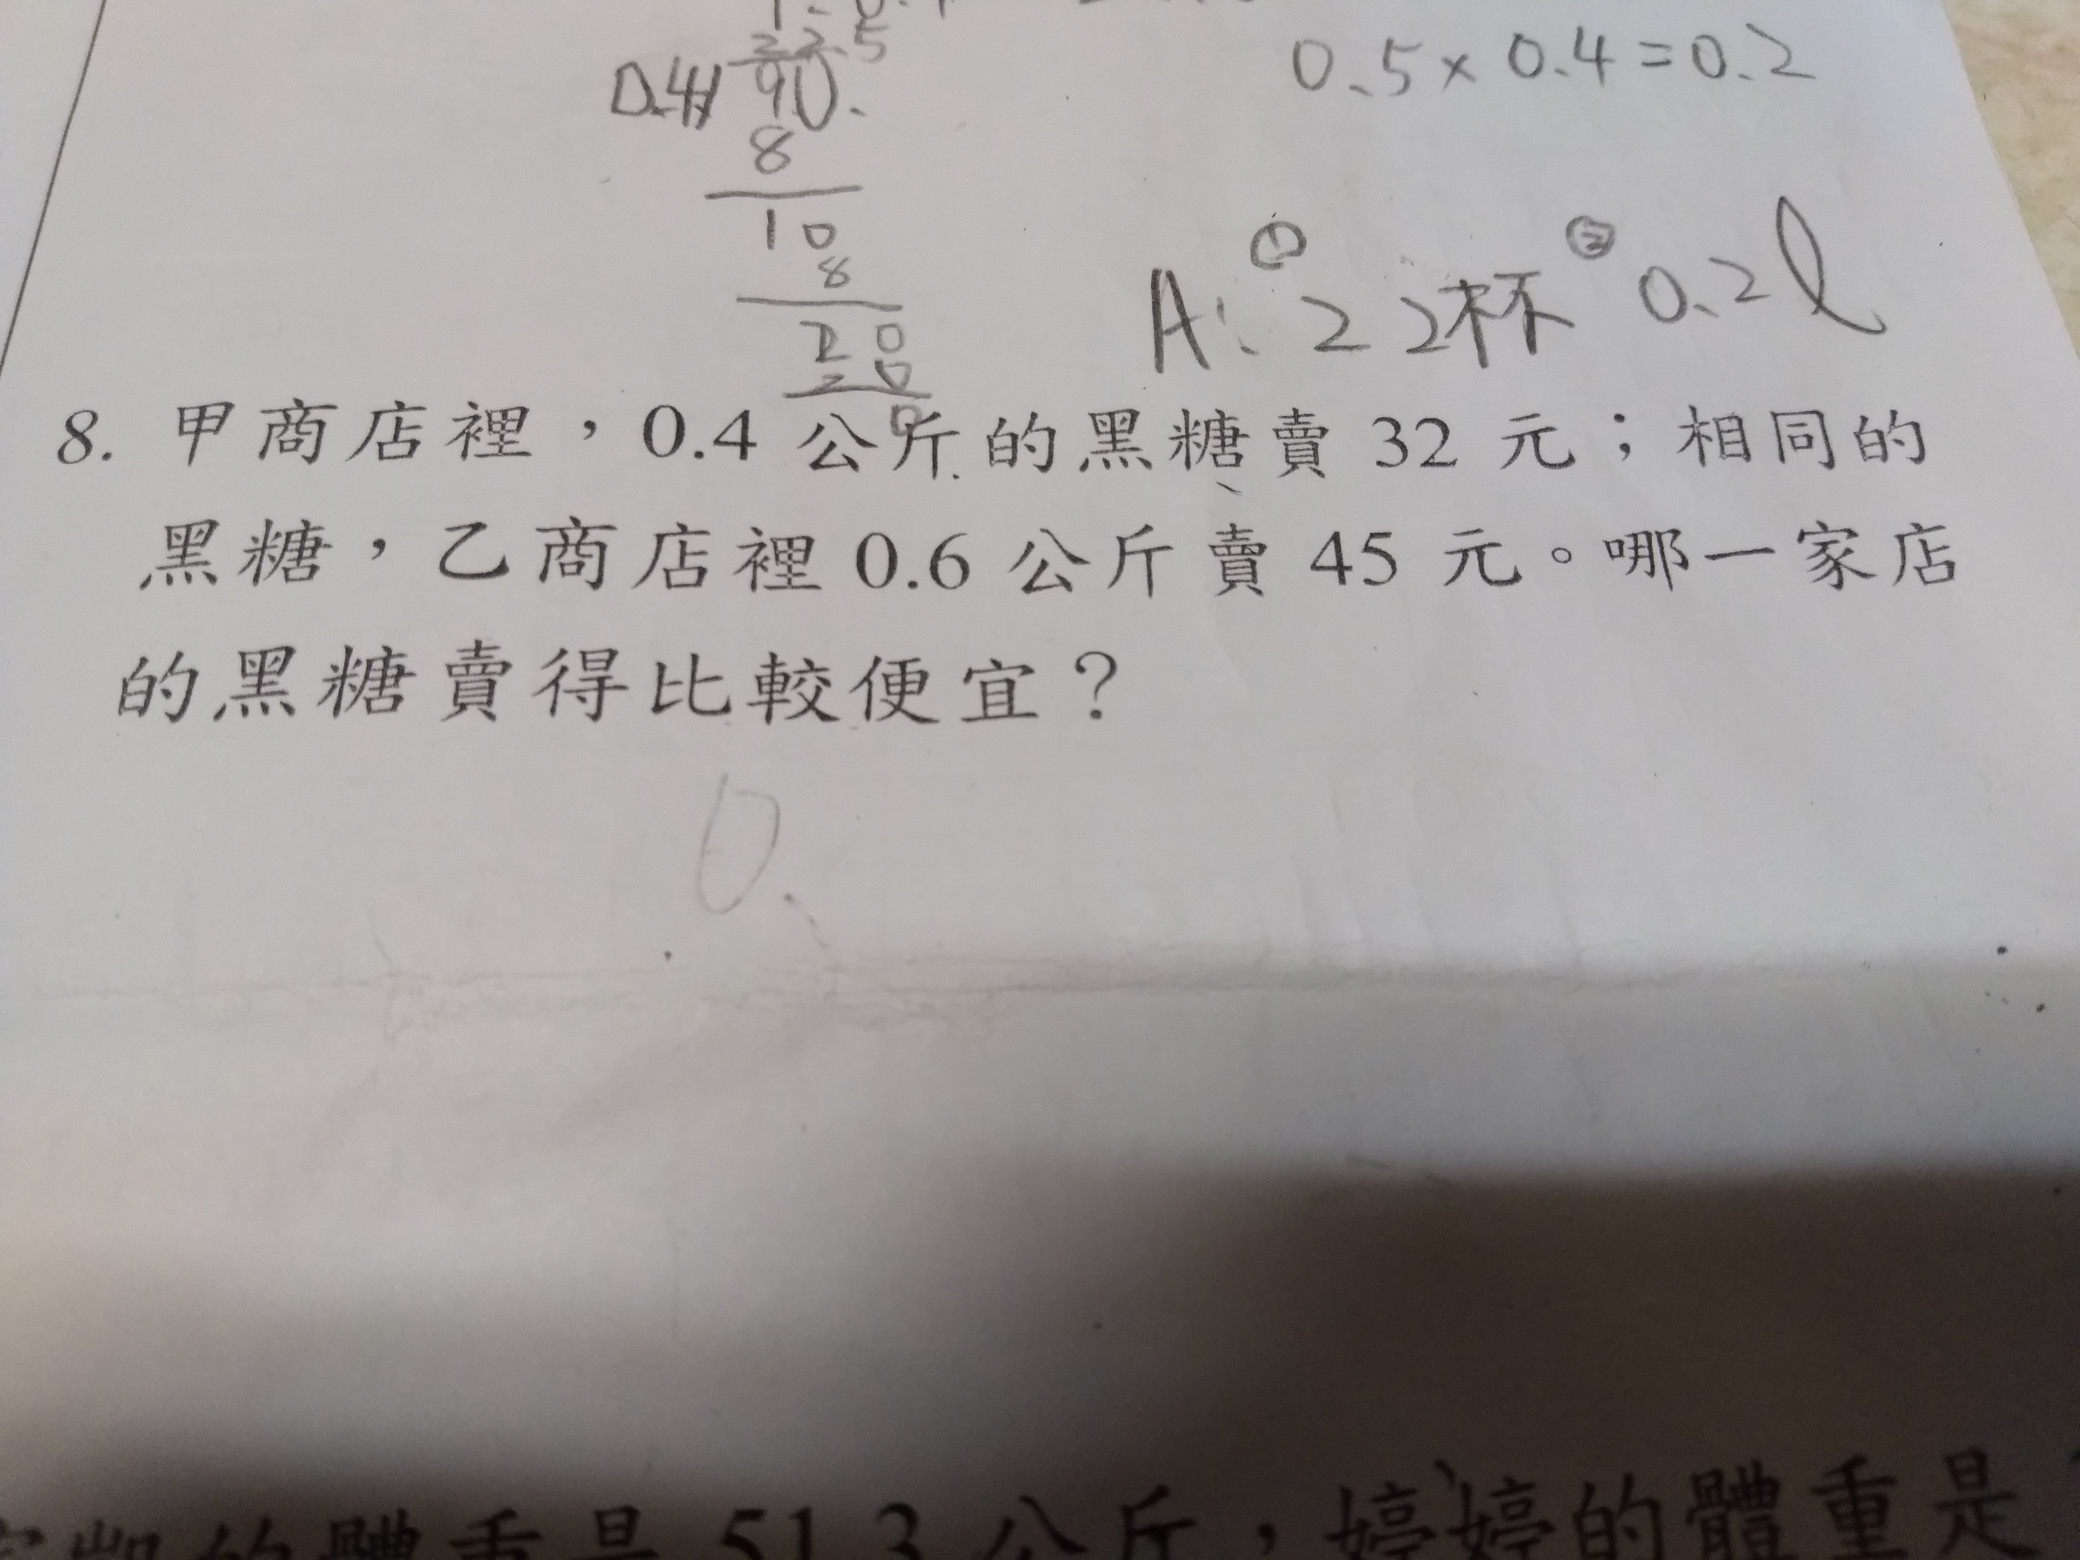 22.5
0.4 90.
0.5×0.4=0.2
8
10
8
20
20
0
A:①22杯②0.2l
8. 甲商店裡，0.4 公斤的黑糖賣 32 元；相同的
黑糖，乙商店裡 0.6 公斤賣 45 元。哪一家店
的黑糖賣得比較便宜？
0.
凱的體重是 51.3 公斤，婷婷的體重是